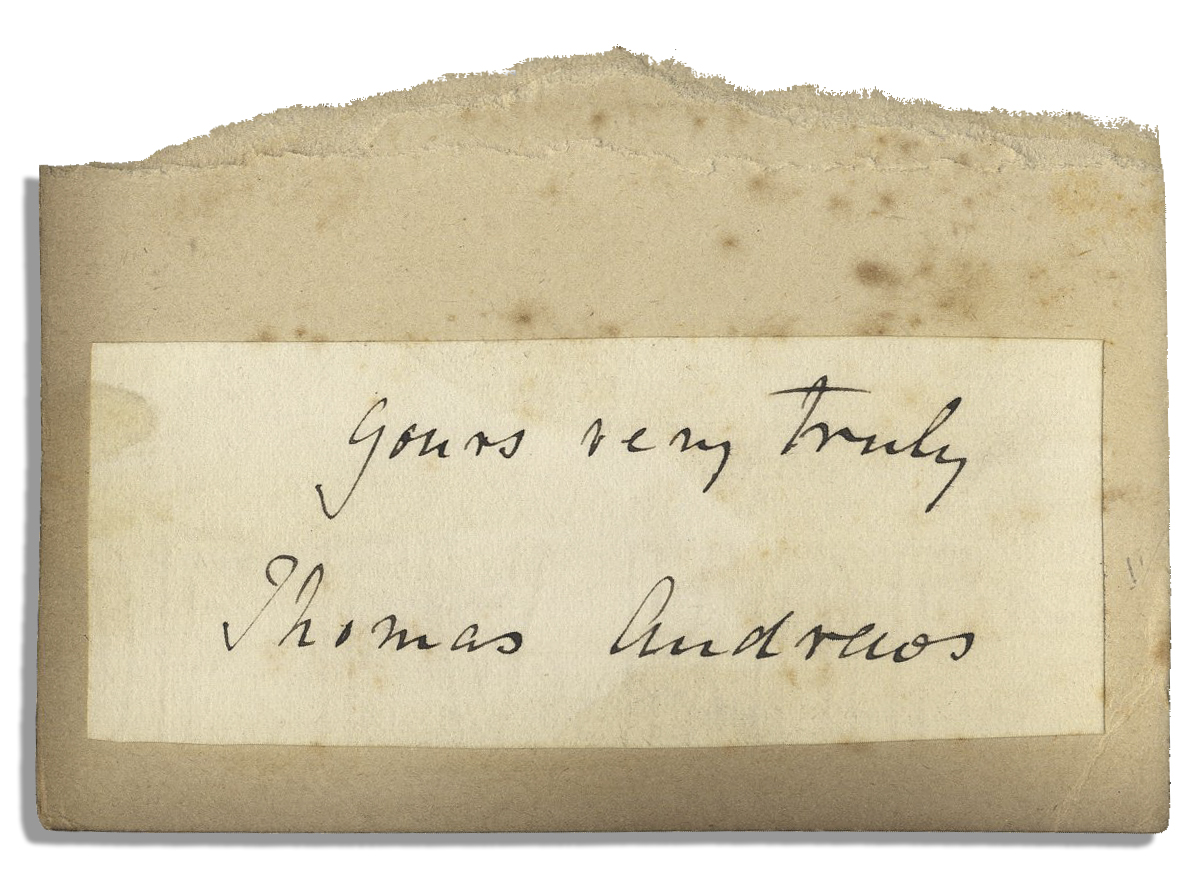 Yours very truly
Thomas Andrews